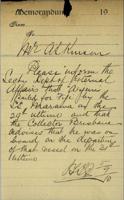 Memorandum 19
From
To
Mr Atkinson
Please inform the
Secty Dept of External
Affairs that "Aquino"
sailed for Fiji by the
SS "Marama" on the
29th ultimo and that
the Collector Brisbane
advises that he was on
board on the departure
of that vessel on the 29th
ultimo